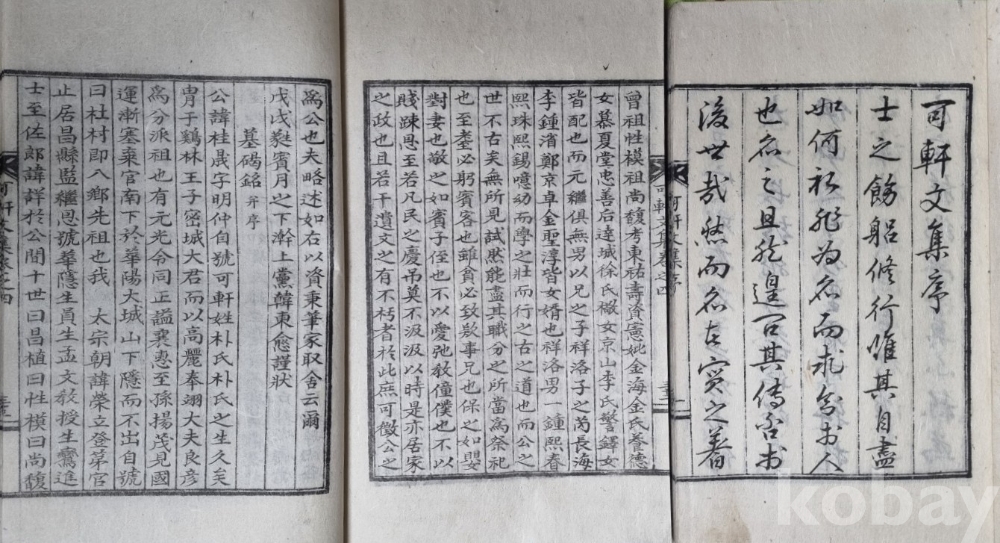 可軒文集序
士之飭躳修行惟其自盡
如何初非為名而求知於人
也名之且遑问其传否於
後世哉然而名者實之著
可軒文集序
曾祖性模祖尚馥考東祐壽資憲妣金海金氏養德
女慕夏堂忠善后達城徐氏女京山李氏警鐸女
皆配也而元繼俱無男以兄之子祥洛子之芮長海
李鍾濱鄭京卓金聖淳皆女婿也祥洛男 鍾熙春
熙珠熙錫噫幼而學之壯而行之古之道也而公之
世不古矣無所見試然能盡其職分之所當為祭祀
也至耋必躬賓客也雖貧必致敬事兄也保之如嬰
對妻也敬之如賓子侄也不以愛弛敎僮僕也不以
賤踈恩至若凡民之慶吊莫不汲汲以時是亦居家
之政也且若干遺文之有不朽者於此庶可徵公之
可軒文集卷之四
為公也夫略述如右以資秉筆家取舍云爾
戊戌蕤賓月之下澣上黨韓東愈謹狀
墓碣銘 并序
公諱桂晟字明仲自號可軒姓朴氏朴氏之生久矣
胄子鷄林王子密城大君而以高麗奉翊大夫良彦
為分派祖也有元光令同正謚襄惠至孫揚茂見國
運漸塞棄官南下於華陽大城山下隱而不出自號
曰杜村即八鄉先祖也我 太宗朝諱榮立登第官
止居昌縣監繼恩號華隱生員生孟文敎授生鸞進
士至佐郎諱詳於公間十世曰昌植曰性模曰尚馥
可軒文集卷之四
kobay